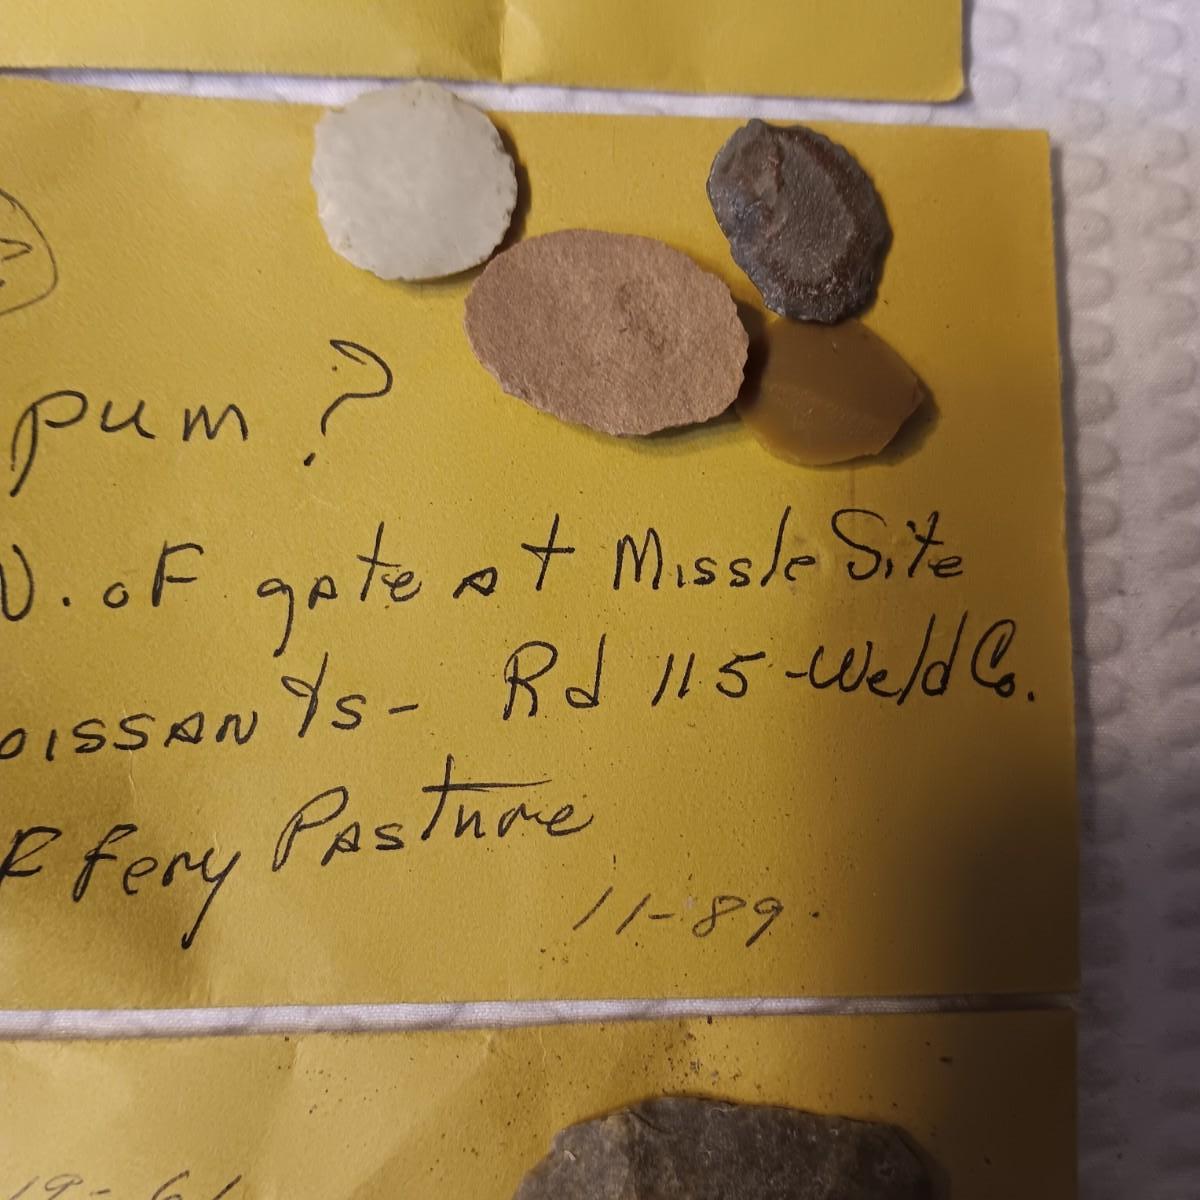 pum?
N. of gate at Missle Site
oissants - Rd 115 - Weld Co.
Pasture
11-89.
19-61